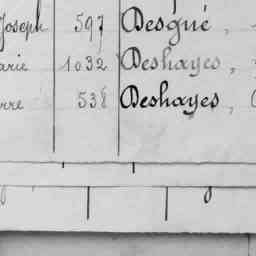 Joseph 597 Desgué,
arie 1032 Deshayes,
rre 538 Deshayes,